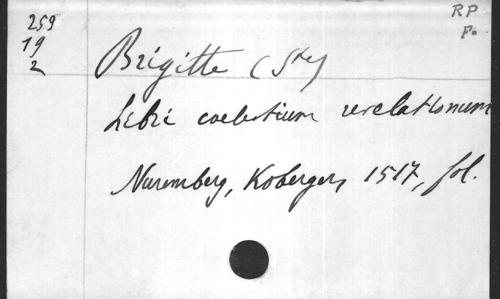 259
19
2
RP
F.
Brigitte (Ste)
Libri coelestium revelationum
Nuremberg, Koberger, 1517, fol.